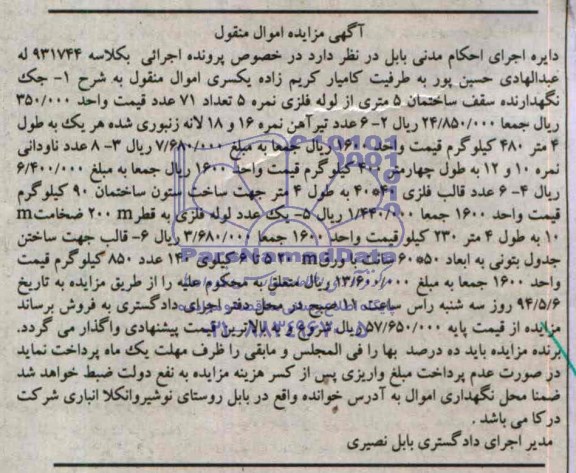 آگهی مزایده اموال منقول
دایره اجرای احکام مدنی بابل در نظر دارد در خصوص پرونده اجرائی بکلاسه ۹۳۱۷۴۴ له
عبدالهادی حسین پور به طرفیت کامیار کریم زاده یکسری اموال منقول به شرح ۱- جک
نگهدارنده سقف ساختمان ۵ متری از لوله فلزی نمره ۵ تعداد ۷۱ عدد قیمت واحد ۳۵۰/۰۰۰
ریال جمعا ۲۴/۸۵۰/۰۰۰ ریال ۲- ۶ عدد تیرآهن نمره ۱۶ و ۱۸ لانه زنبوری شده هر یک به طول
۴ متر ۴۸۰ کیلوگرم قیمت واحد ۱۶۰۰ ریال جمعا به مبلغ ۷/۶۸۰/۰۰۰ ریال ۳- ۸ عدد ناودانی
نمره ۱۰ و ۱۲ به طول چهارمتر ۴۰۰ کیلوگرم قیمت واحد ۱۶۰۰ ریال جمعا به مبلغ ۶/۴۰۰/۰۰۰
ریال ۴- ۶ عدد قالب فلزی ۴۰*۴۰ به طول ۴ متر جهت ساخت ستون ساختمان ۹۰ کیلوگرم
قیمت واحد ۱۶۰۰ جمعا ۱/۴۴۰/۰۰۰ ریال ۵- یک عدد لوله فلزی به قطر m ۲۰۰ ضخامت m
۱۰ به طول ۴ متر ۲۳۰ کیلو قیمت واحد ۱۶۰۰ جمعا ۳/۶۸۰/۰۰۰ ریال ۶- قالب جهت ساختن
جدول بتونی به ابعاد ۵۰*۶۰ با ورق m ۲ تا ۶ کیلوی ۱۴۰ عدد ۸۵۰ کیلوگرم قیمت
واحد ۱۶۰۰ جمعا به مبلغ ۱۳/۶۰۰/۰۰۰ ریال متعلق به محکوم علیه را از طریق مزایده به تاریخ
۹۴/۵/۶ روز سه شنبه رأس ساعت ۱۱ صبح در محل دفتر اجرای دادگستری به فروش برساند
مزایده از قیمت پایه ۵۷/۶۵۰/۰۰۰ ریال شروع و به بالاترین قیمت پیشنهادی واگذار می گردد.
برنده مزایده باید ده درصد بها را فی المجلس و مابقی را ظرف مهلت یک ماه پرداخت نماید
در صورت عدم پرداخت مبلغ واریزی پس از کسر هزینه مزایده به نفع دولت ضبط خواهد شد
ضمنا محل نگهداری اموال به آدرس خوانده واقع در بابل روستای نوشیروانکلا انباری شرکت
درکا می باشد .
مدیر اجرای دادگستری بابل نصیری
ParsNamadData